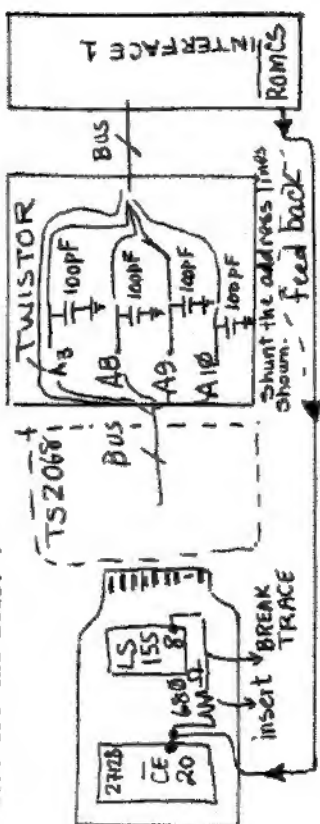 INTERFACE 1
ROMCS
BUS
TWISTOR
A3
100pF
A8
100pF
A9
100pF
A10
100pF
Shunt the address lines
shown.
feed back
TS2068
BUS
LS
155
8
680Ω
27128
CE
20
insert
BREAK
TRACE